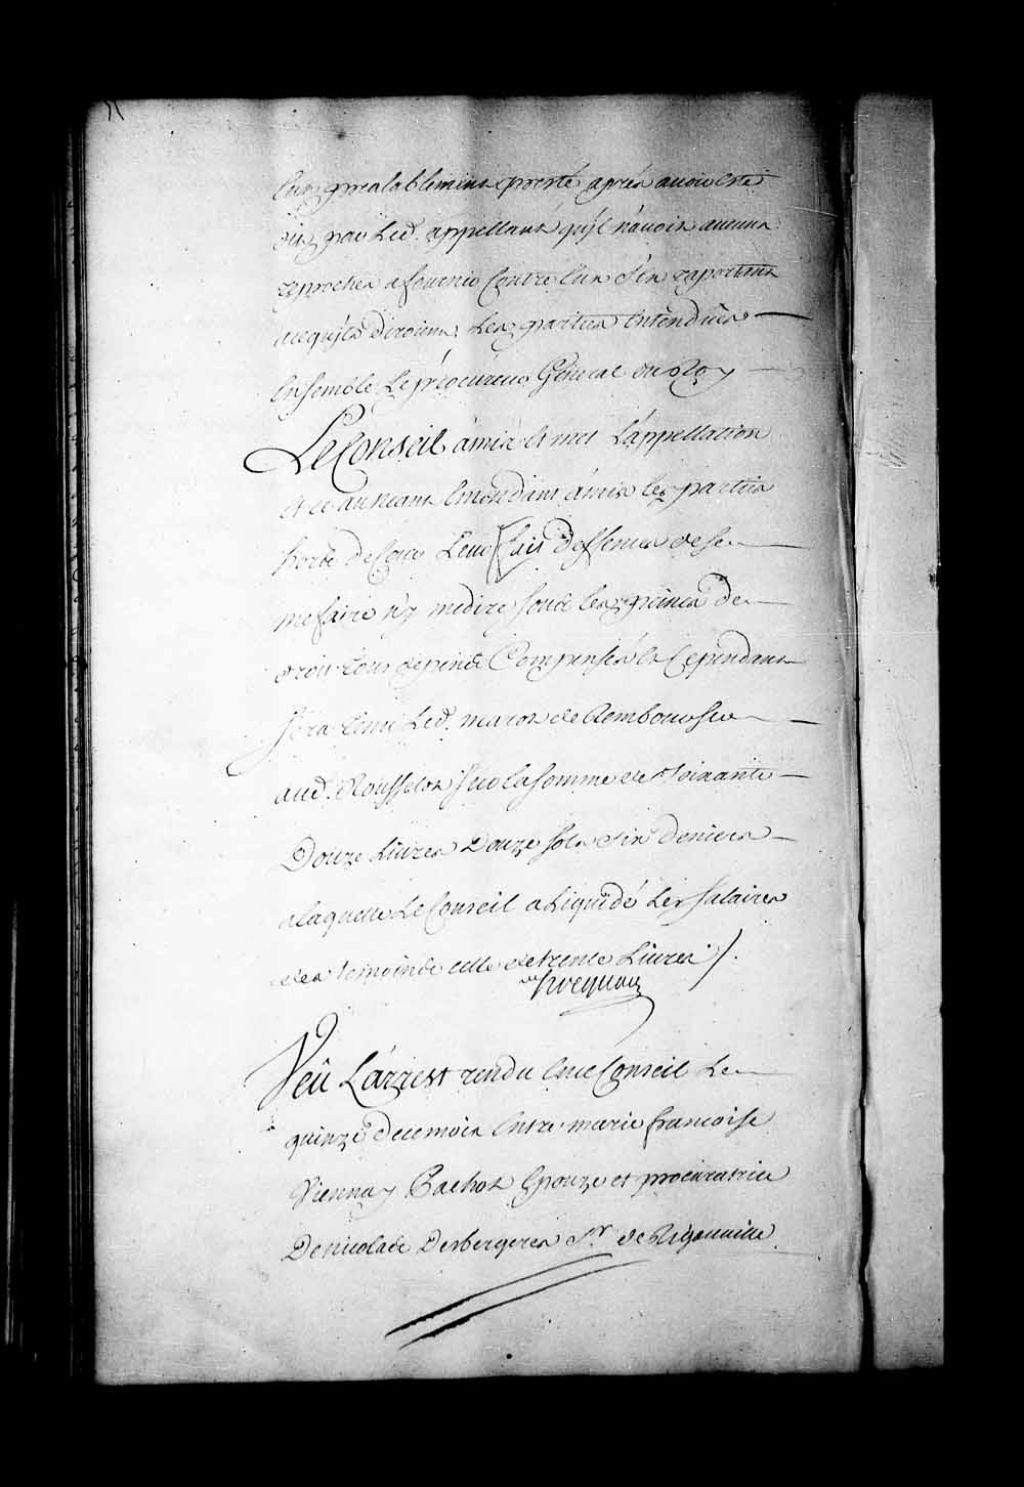 Eux prealablement presté apres avoir esté
dit par Led. appellant qu'jl n'avoit aucuns
reproches a fournir Contre eux Et en raportant
acequ'jls diroient, Les parties Entendües
Ensemble Le procureur General du Roy
Le Conseil à mis et met L'appellation
Et ce au Neant Emandant à mis les parties
hors de Cour Leur fait deffenses de se
mesfaire n'y medire sous les peines de
droit tous depends Compensés et Cependant
sera tenu Led. maron de Rembourser
aud. Rousselot sur la somme de soixante
Douze Livres Douze sols six deniers
a laquelle Le Conseil a Liquidé les salaires
des temoins celle de trente Livres /.
Veu L'arrest rendu En ce Conseil Le
quinze de ce mois Entre marie francoise
Viennay Pachot Epouze et procuratrice
De nicolas Desbergeres Sr. de Rigauville